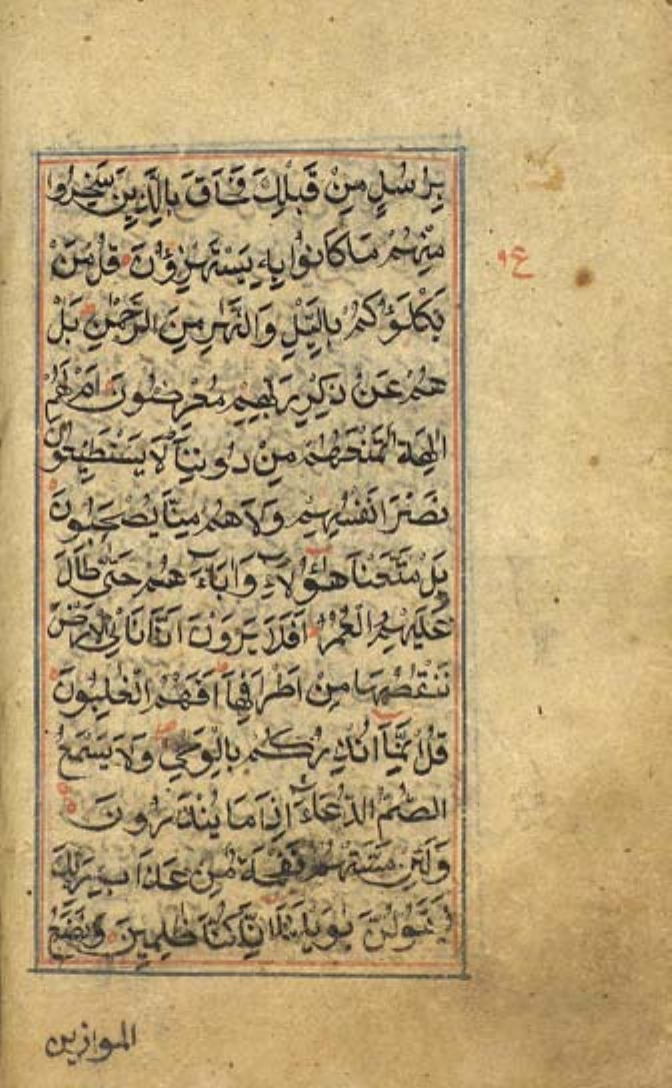 بِرُسُلٍ مِنْ قَبْلِكَ فَحَاقَ بِالَّذِينَ سَخِرُوا
مِنْهُمْ مَا كَانُوا بِهِ يَسْتَهْزِؤُنَ قُلْ مَنْ
يَكْلَؤُكُمْ بِالَّيْلِ وَالنَّهَارِ مِنَ الرَّحْمٰنِ بَلْ
هُمْ عَنْ ذِكْرِ رَبِّهِمْ مُعْرِضُونَ اَمْ لَهُمْ
اٰلِهَةٌ تَمْنَعُهُمْ مِنْ دُونِنَا لَا يَسْتَطِيعُونَ
نَصْرَ اَنْفُسِهِمْ وَلَا هُمْ مِنَّا يُصْحَبُونَ
بَلْ مَتَّعْنَا هٰؤُلَاءِ وَاٰبَاءَ هُمْ حَتّٰى طَالَ
عَلَيْهِمُ الْعُمُرُ اَفَلَا يَرَوْنَ اَنَّا نَاْتِي الْاَرْضَ
نَنْقُصُهَا مِنْ اَطْرَافِهَا اَفَهُمُ الْغٰلِبُونَ
قُلْ اِنَّمَا اُنْذِرُكُمْ بِالْوَحْيِ وَلَا يَسْمَعُ
الصُّمُّ الدُّعَاءَ اِذَا مَا يُنْذَرُونَ
وَلَئِنْ مَسَّتْهُمْ نَفْحَةٌ مِنْ عَذَابِ رَبِّكَ
لَيَقُولُنَّ يٰوَيْلَنَا اِنَّا كُنَّا ظٰلِمِينَ وَنَضَعُ
الموازين